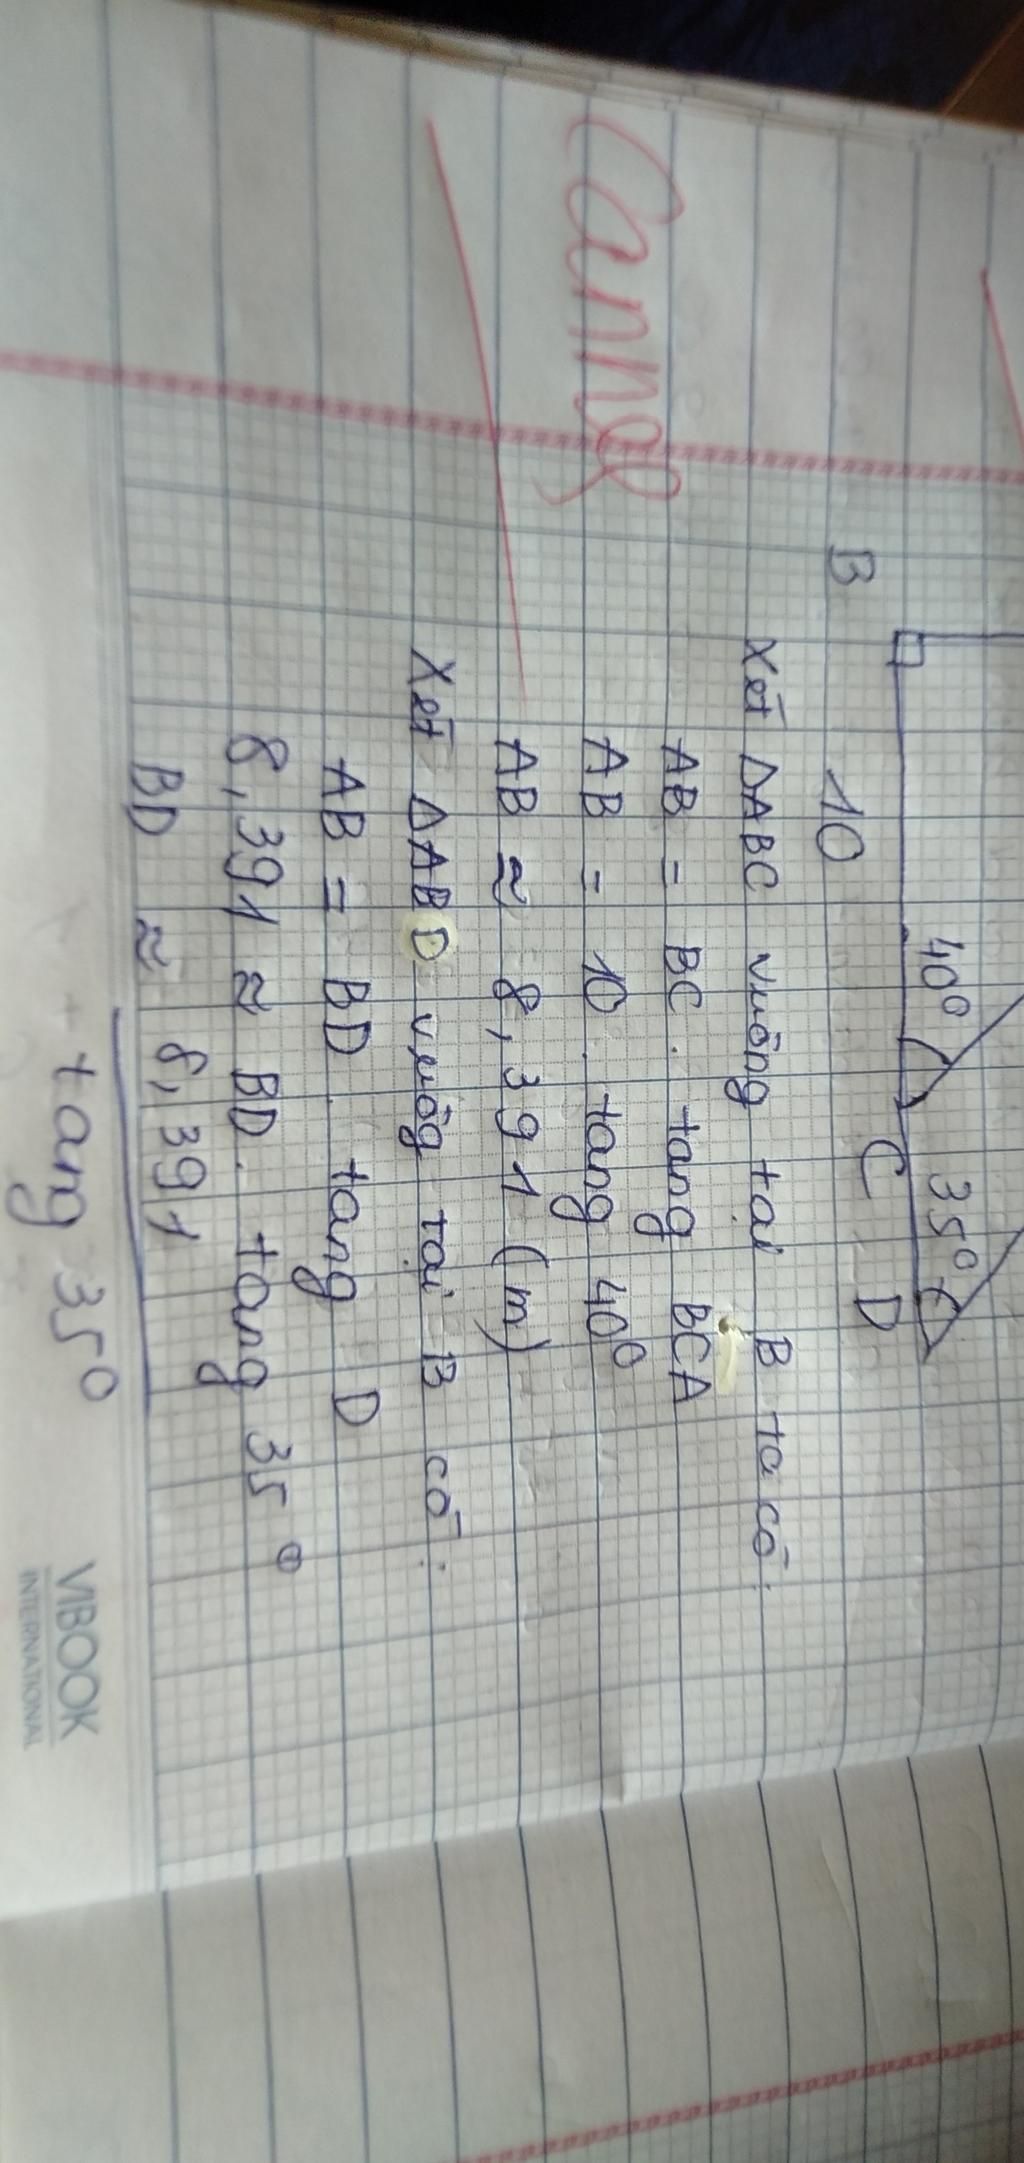 40° 35°
B 10 C D
Xét ΔABC vuông tại B ta có:
AB = BC . tang BCA
AB = 10 . tang 40°
AB ≈ 8,391 (m)
Xét ΔABD vuôg tại B có:
AB = BD . tang D
8,391 ≈ BD . tang 35°
BD ≈ 8,391
tang 35°
VIBOOK
INTERNATIONAL